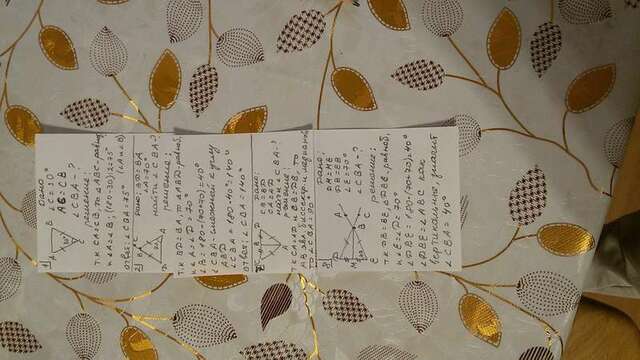 1) Дано
A B ∠C=30°
30° AC=CB
C ∠CBA-?
решение:
т.к CA=CB, то △ABC-равноб
и ∠A=∠B; (180-30):2=75°
(∠A и ∠B)
ответ: ∠CBA=75°
2) Дано: BD=BA
∠A=70°
D A найти ∠CBA-?
решение:
т.к BD=BA, то △ABD-равноб.
и ∠A=∠D=70°
∠B=180-(70+70)=40°
∠CBA-смежный к углу
ABD
∠CBA=180-40°=140°
ответ: ∠CBA=140°
7 Дано:
C B D CB=BD
CA=AD
A найти ∠CBA-?
решение:
т.к CA=AD и CB=DB, то
AB явл. биссектр. и медианой
то ∠CBA=90°
8 Дано,
D A DM=ME
DB=EB
M ∠E=70°
E B C ∠CBA-?
решение:
т.к DB=BE, △DBE-равноб,
и ∠E=∠D=70°
∠DBE=180-(70+70)=40°
∠DBE=∠ABC как
вертикальные, значит
∠CBA=40°